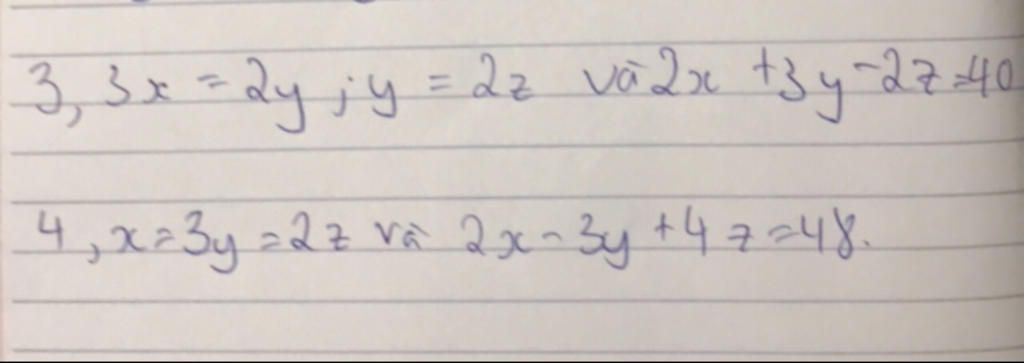 3, 3x = 2y ; y = 2z và 2x + 3y - 2z = 40
4, x = 3y = 2z và 2x - 3y + 4z = 48.